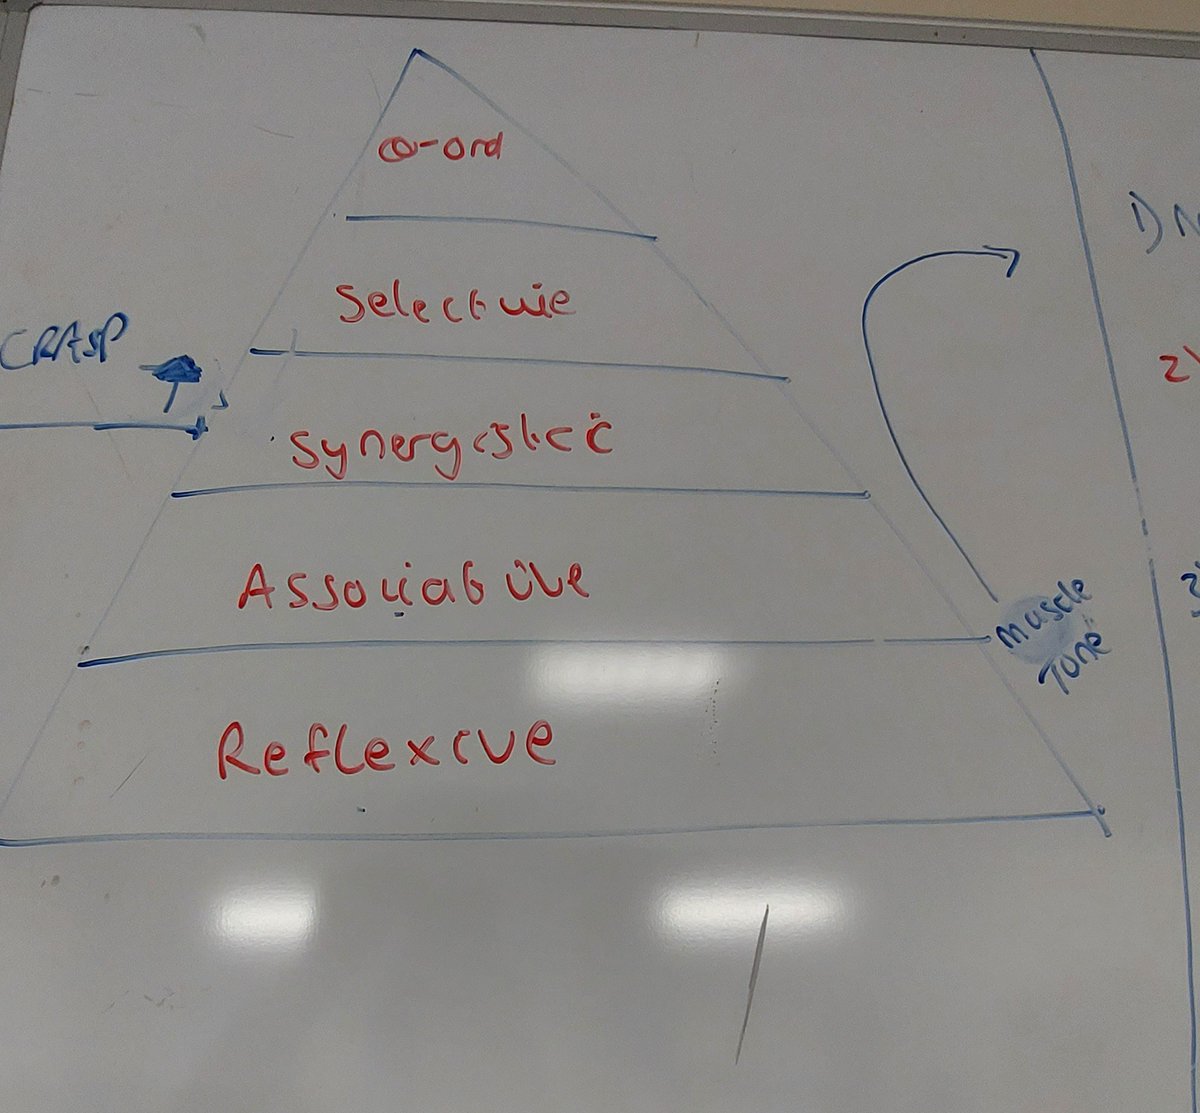 co-ord
Selective
CRASP
Synergistic
Associative
Muscle
Tone
Reflexive
1)
2)